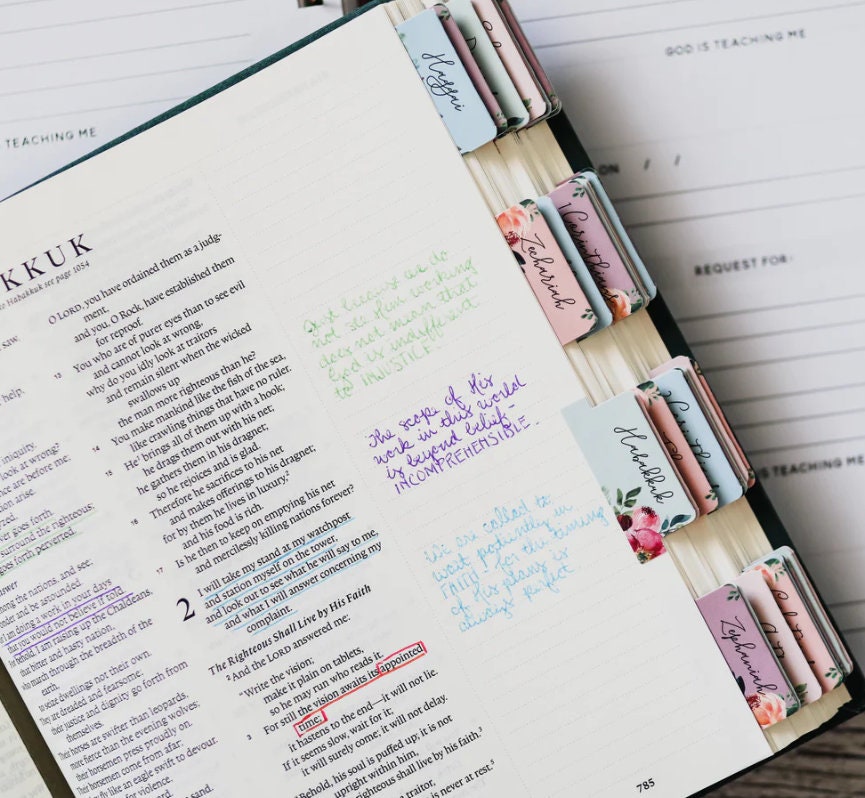 GOD IS TEACHING ME
TEACHING ME
ON / /
REQUEST FOR:
IS TEACHING ME
Haggai
Zechariah
1 Corinthians
Habakkuk
Zephaniah
KKUK
Habakkuk see page 1054
saw.
help,
iniquity.
look at wrong?
are before me;
arise.
goes forth.
surround the righteous;
goes forth perverted.
among the nations, and see;
and be astounded.
I am doing a work in your days
that you would not believe if told.
I am raising up the Chaldeans,
that bitter and hasty nation,
who march through the breadth of the
earth,
to seize dwellings not their own.
They are dreaded and fearsome;
their justice and dignity go forth from
themselves.
Their horses are swifter than leopards,
more fierce than the evening wolves;
their horsemen press proudly on.
Their horsemen come from afar;
they fly like an eagle swift to devour.
for violence,
sand.
O LORD, you have ordained them as a judg-
ment,
and you, O Rock, have established them
for reproof.
13 You who are of purer eyes than to see evil
and cannot look at wrong,
why do you idly look at traitors
and remain silent when the wicked
swallows up
the man more righteous than he?
14 You make mankind like the fish of the sea,
like crawling things that have no ruler.
15 He¹ brings all of them up with a hook;
he drags them out with his net;
he gathers them in his dragnet;
so he rejoices and is glad.
16 Therefore he sacrifices to his net
and makes offerings to his dragnet;
for by them he lives in luxury,²
and his food is rich.
17 Is he then to keep on emptying his net
and mercilessly killing nations forever?
2 I will take my stand at my watchpost
and station myself on the tower,
and look out to see what he will say to me,
and what I will answer concerning my
complaint.
The Righteous Shall Live by His Faith
² And the LORD answered me:
"Write the vision;
make it plain on tablets,
so he may run who reads it.
3 For still the vision awaits its appointed
time;
it hastens to the end—it will not lie.
If it seems slow, wait for it;
it will surely come; it will not delay.
"Behold, his soul is puffed up; it is not
upright within him,
righteous shall live by his faith.³
a traitor,
is never at rest.⁵
Just because we do
not see Him working
does not mean that
God is indifferent
to INJUSTICE.
The scope of His
work in this world
is beyond belief-
INCOMPREHENSIBLE.
We are called to
wait patiently in
FAITH for the timing
of his plans is
always perfect
785